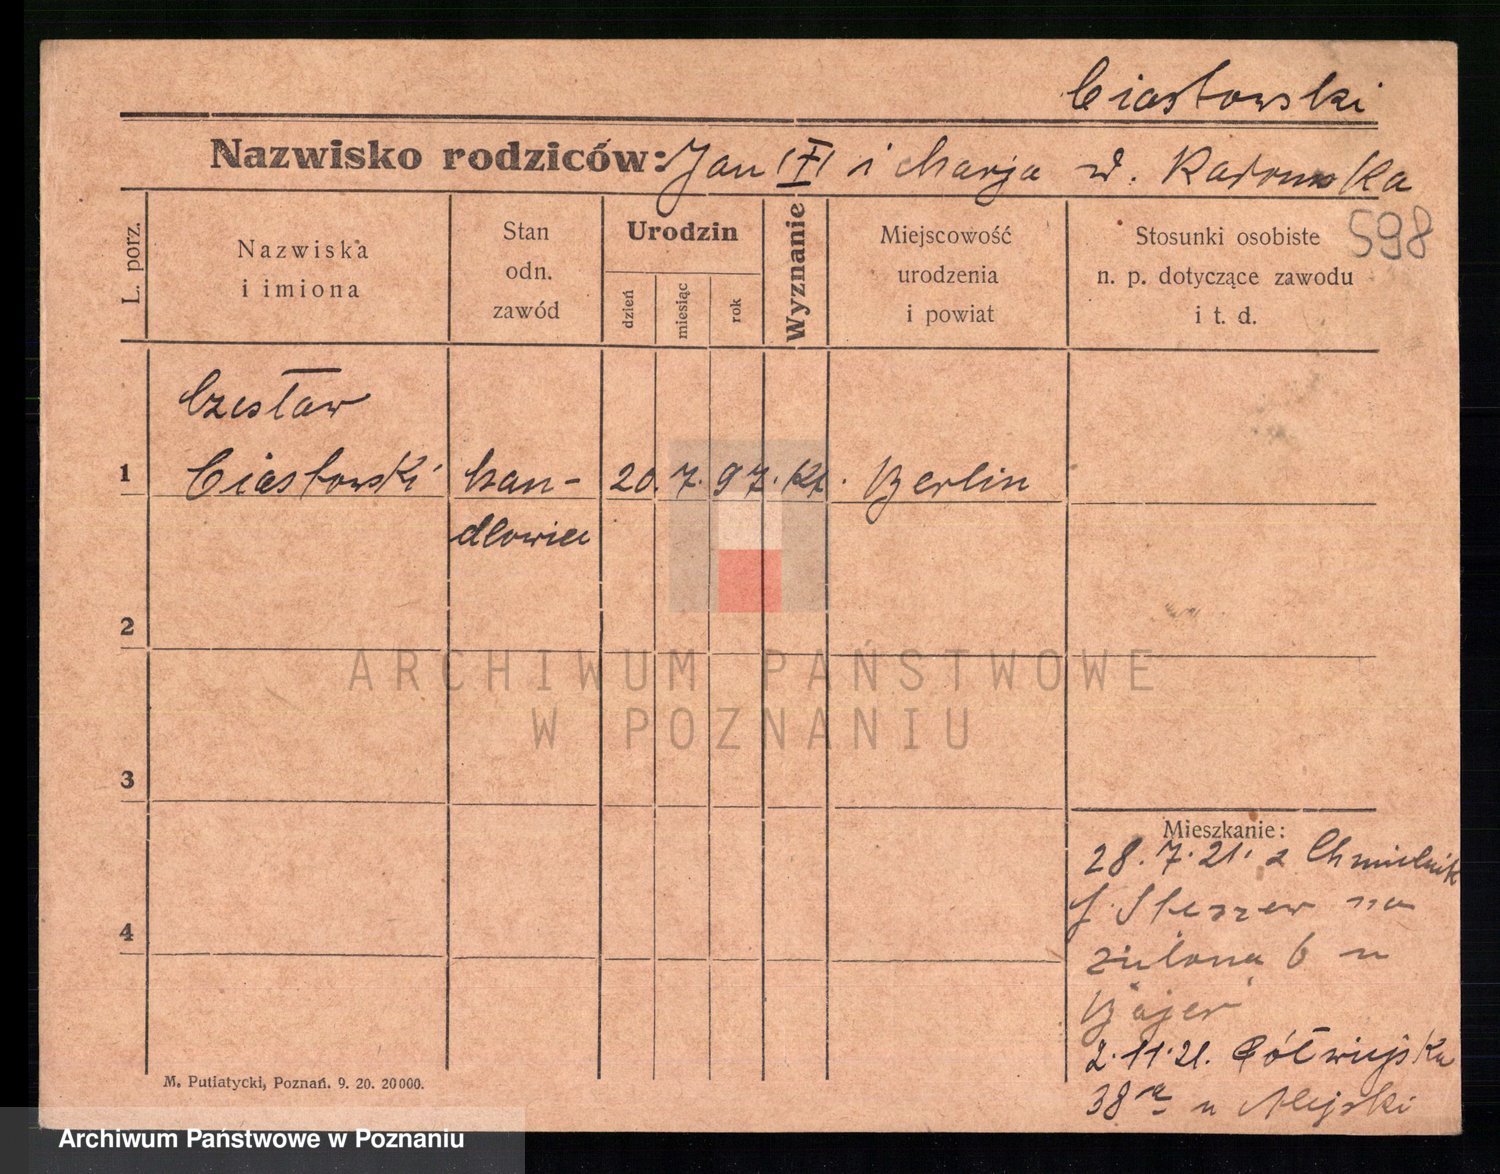 Ciastowski
Nazwisko rodziców: Jan (†) i Marja d. Radomska
598
L. porz.
Nazwiska
i imiona
Stan
odn.
zawód
Urodzin
dzień
miesiąc
rok
Wyznanie
Miejscowość
urodzenia
i powiat
Stosunki osobiste
n. p. dotyczące zawodu
i t. d.
Czesław
1 Ciastowski han- 20. 7. 97. Kt. Berlin
dlowiec
2
ARCHIWUM PAŃSTWOWE
W POZNANIU
3
Mieszkanie:
28. 7. 21. z Chmielnik
Stenzew na
zielona 6 u
Bajer
4
2. 11. 21. Półwiejska
38 a u
M. Putiatycki, Poznań. 9. 20. 20000.
Archiwum Państwowe w Poznaniu